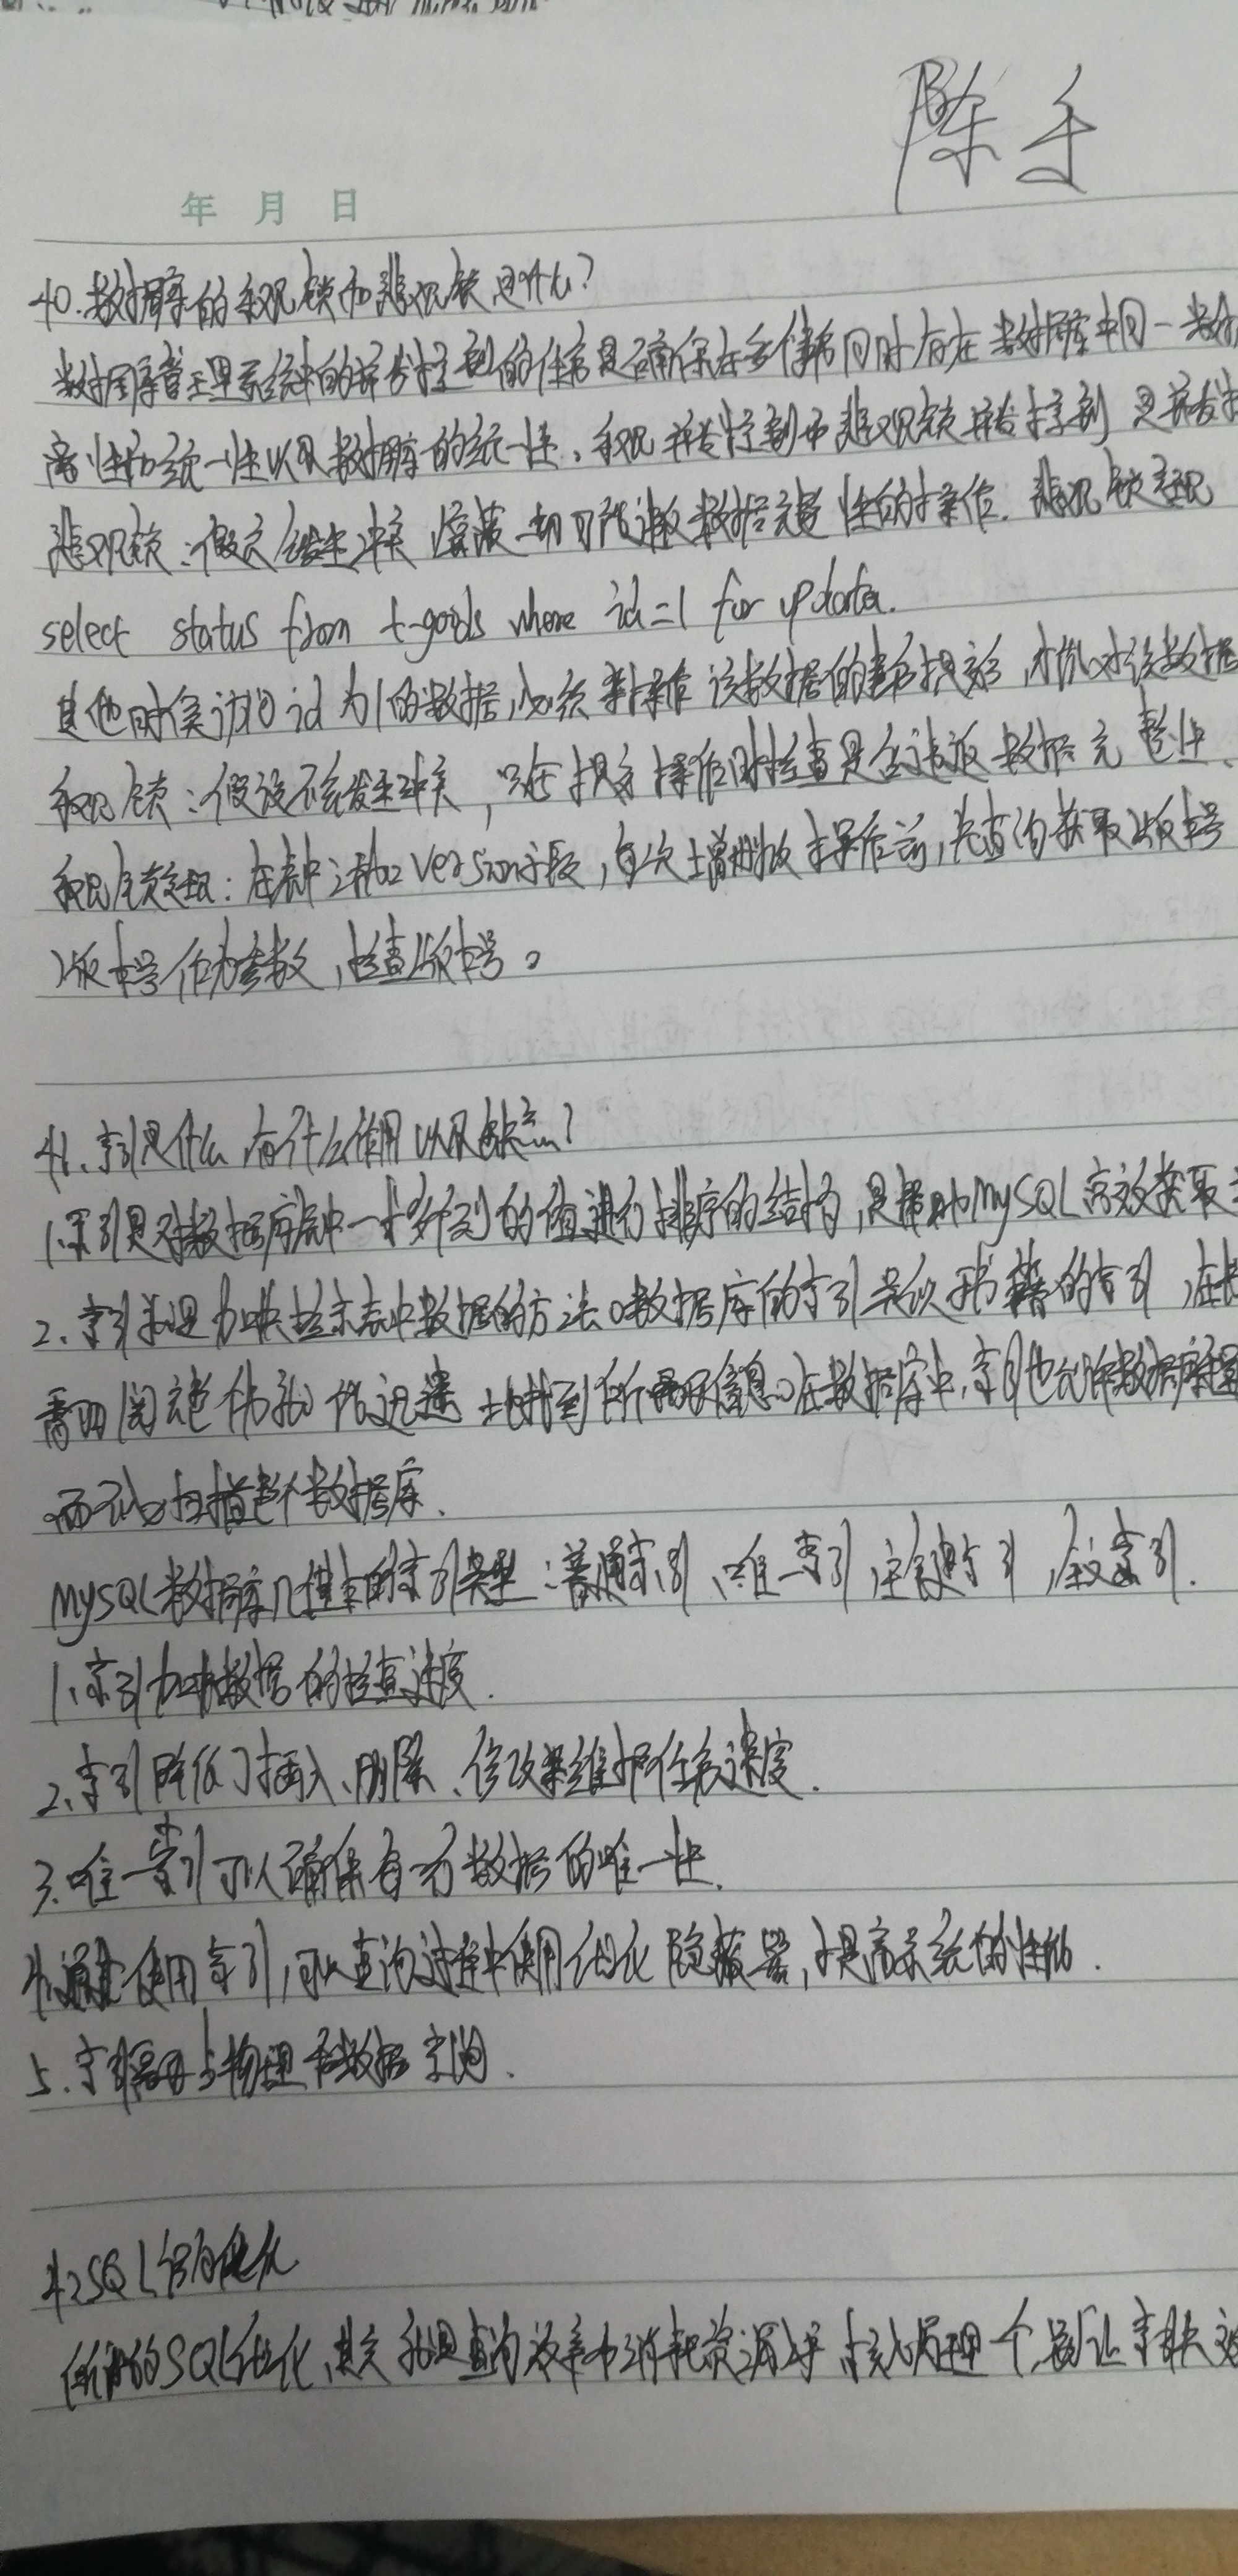 陈
年 月 日
40.数据库的乐观锁和悲观锁是什么?
数据库管理系统中的并发控制的任务是确保在多个事务同时存在数据库中同一数据
离性和统一性以及数据库的统一性,乐观并发控制和悲观锁并发控制是并发
悲观锁:假定会发生冲突,屏蔽一切可能违反数据完整性的操作.悲观锁实现
select status from t-goods where id=1 for updata.
其他时候访问id为1的数据,必须等操作该数据的事务提交,才能对该数据
乐观锁:假设不会发生冲突,只在提交操作时检查是否违反数据完整性、
乐观锁实现:在表中添加version字段,每次增删改操作前,先查询获取版本号
版本号作为参数,检查版本号。
41、索引是什么,有什么作用以及缺点?
1.索引是对数据库表中一或多列的值进行排序的结构,是帮助MySQL高效获取
2、索引就是加快检索表中数据的方法。数据库的索引类似于书籍的索引,在
需要阅完整个书就可以迅速地找到所需要信息。在数据库中,索引也允许数据库程
而不必扫描整个数据库.
MySQL数据库几种基本的索引类型:普通索引、唯一索引、主键索引,全文索引.
1、索引加快数据的检查速度.
2、索引降低了插入、删除、修改等维护任务速度.
3.唯一索引可以确保每一行数据的唯一性.
4.通过使用索引,可以查询过程中使用优化隐蔽器,提高系统的性能.
5.索引需要占物理和数据空间.
42SQL语句优化
所谓的SQL优化,其实就是查询效率和消耗资源 核心原理一个,别让索引失效